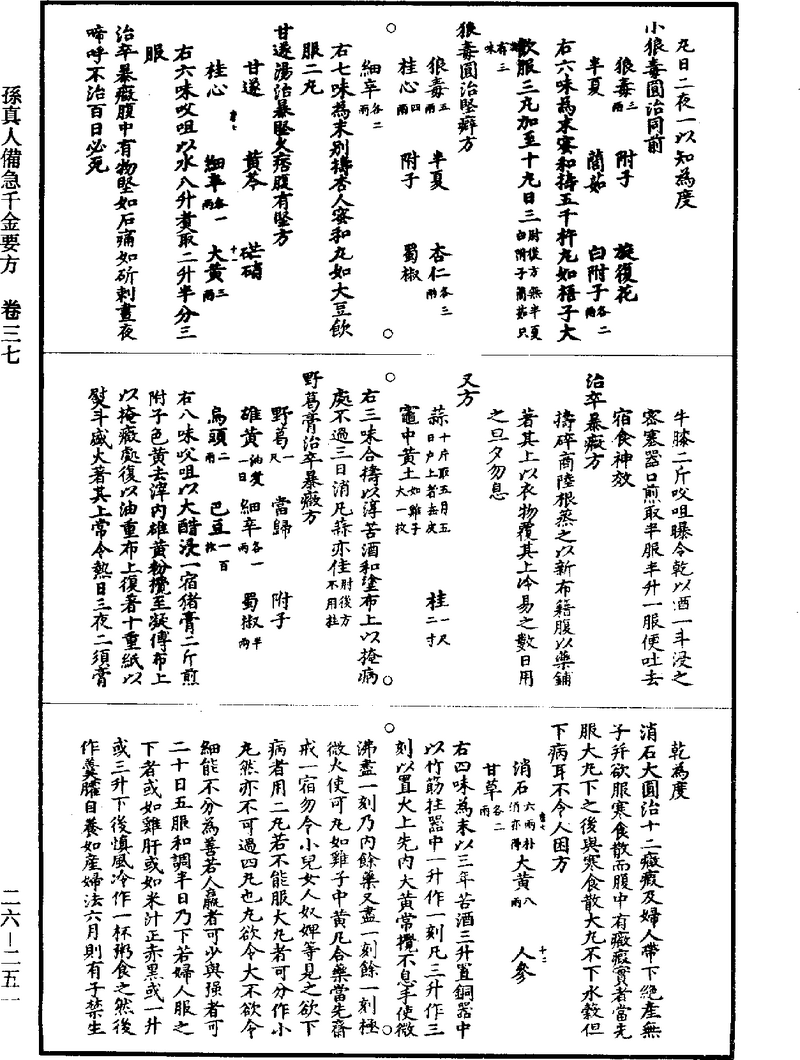 孫真人備急千金要方　卷三七
二六—二五一
丸日二夜一以知為度
小狼毒圓治同前
狼毒三兩　附子　旋復花
半夏　䕡茹　白附子各二兩
右六味為末蜜和擣五千杵丸如梧子大
飲服三丸加至十丸日三肘後方無半夏白附子䕡茹只
有三味
狼毒圓治堅癖方
狼毒五兩　半夏　杏仁各三兩
桂心四兩　附子　蜀椒
細辛各二兩
右七味為末別擣杏人蜜和丸如大豆飲
服二丸
甘遂湯治暴堅久痞腹有堅方
甘遂　黃芩　芒硝
桂心　細辛各一兩　大黃三兩
右六味㕮咀以水八升煮取二升半分三
服
治卒暴癥腹中有物堅如石痛如斫刺晝夜
啼呼不治百日必死
牛膝二斤㕮咀曝令乾以酒一斗浸之
密塞器口煎取半服半升一服便吐去
宿食神效
治卒暴癥方
擣碎商陸根蒸之以新布籍腹以藥鋪
著其上以衣物覆其上冷易之數日用
之旦夕勿息
又方
蒜十斤取五月五日戶上者去皮　桂一尺二寸
竈中黃土如雞子大一枚
右三味合擣以淳苦酒和塗布上以掩病
處不過三日消凡蒜亦佳肘後方不用桂
野葛膏治卒暴癥方
野葛一尺　當歸　附子
雄黃油煮一日　細辛各一兩　蜀椒半兩
烏頭二兩　巴豆一百枚
右八味㕮咀以大醋浸一宿猪膏二斤煎
附子色黃去滓內雄黃粉攪至凝傅布上
以掩癥處復以油重布上復著十重紙以
熨斗盛火著其上常令熱日三夜二須膏
乾為度
消石大圓治十二癥瘕及婦人帶下絕產無
子并欲服寒食散而腹中有癥瘕實者當先
服大丸下之後與寒食散大丸不下水穀但
下病耳不令人困方
消石六兩朴消亦得　大黃八兩　人參
甘草各二兩
右四味為末以三年苦酒三升置銅器中
以竹筋拄器中一升作一刻凡三升作三
刻以置火上先內大黃常攪不息手使微
沸盡一刻乃內餘藥又盡一刻餘一刻極
微火使可丸如雞子中黃凡合藥當先齋
戒一宿勿令小兒女人奴婢等見之欲下
病者用二丸若不能服大丸者可分作小
丸然亦不可過四丸也丸欲令大不欲令
細能不分為善若人羸者可少與强者可
二十日五服和調半日乃下若婦人服之
下者或如雞肝或如米汁正赤黑或一升
或三升下後慎風冷作一杯粥食之然後
作羹臛自養如產婦法六月則有子禁生